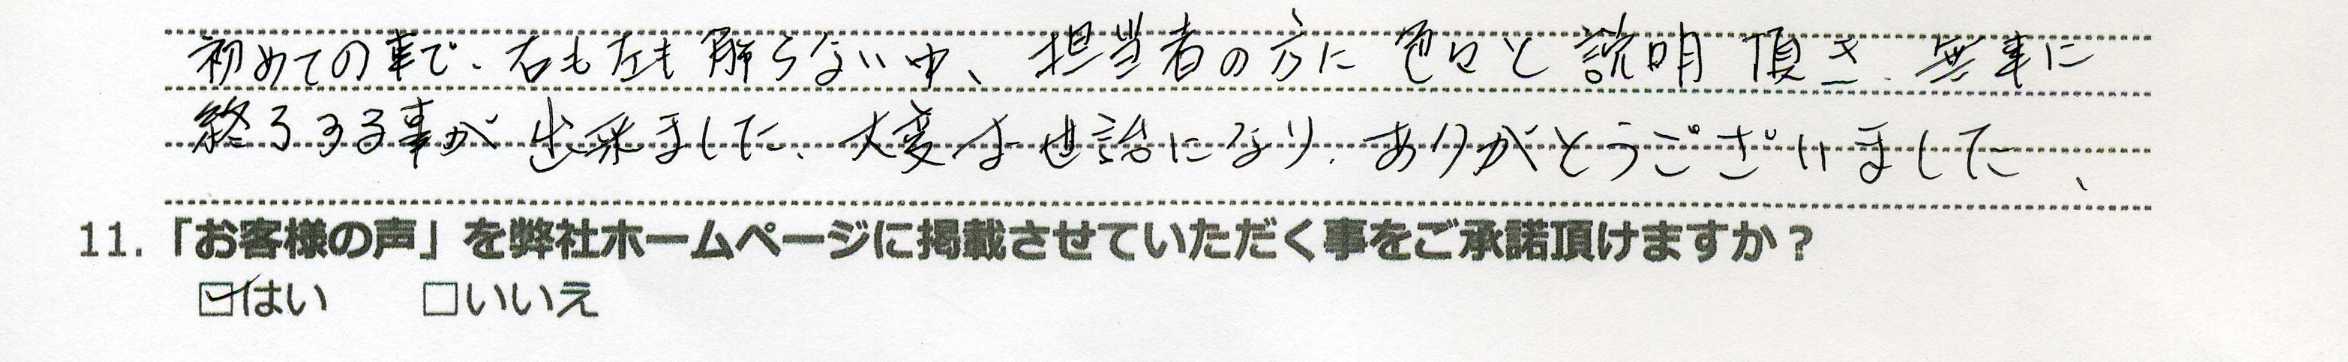 初めての事で、右も左も解らない中、担当者の方に色々と説明頂き、無事に
終了する事が出来ました、大変お世話になり、ありがとうございました、
11.「お客様の声」を弊社ホームページに掲載させていただく事をご承諾頂けますか？
☑はい　　□いいえ